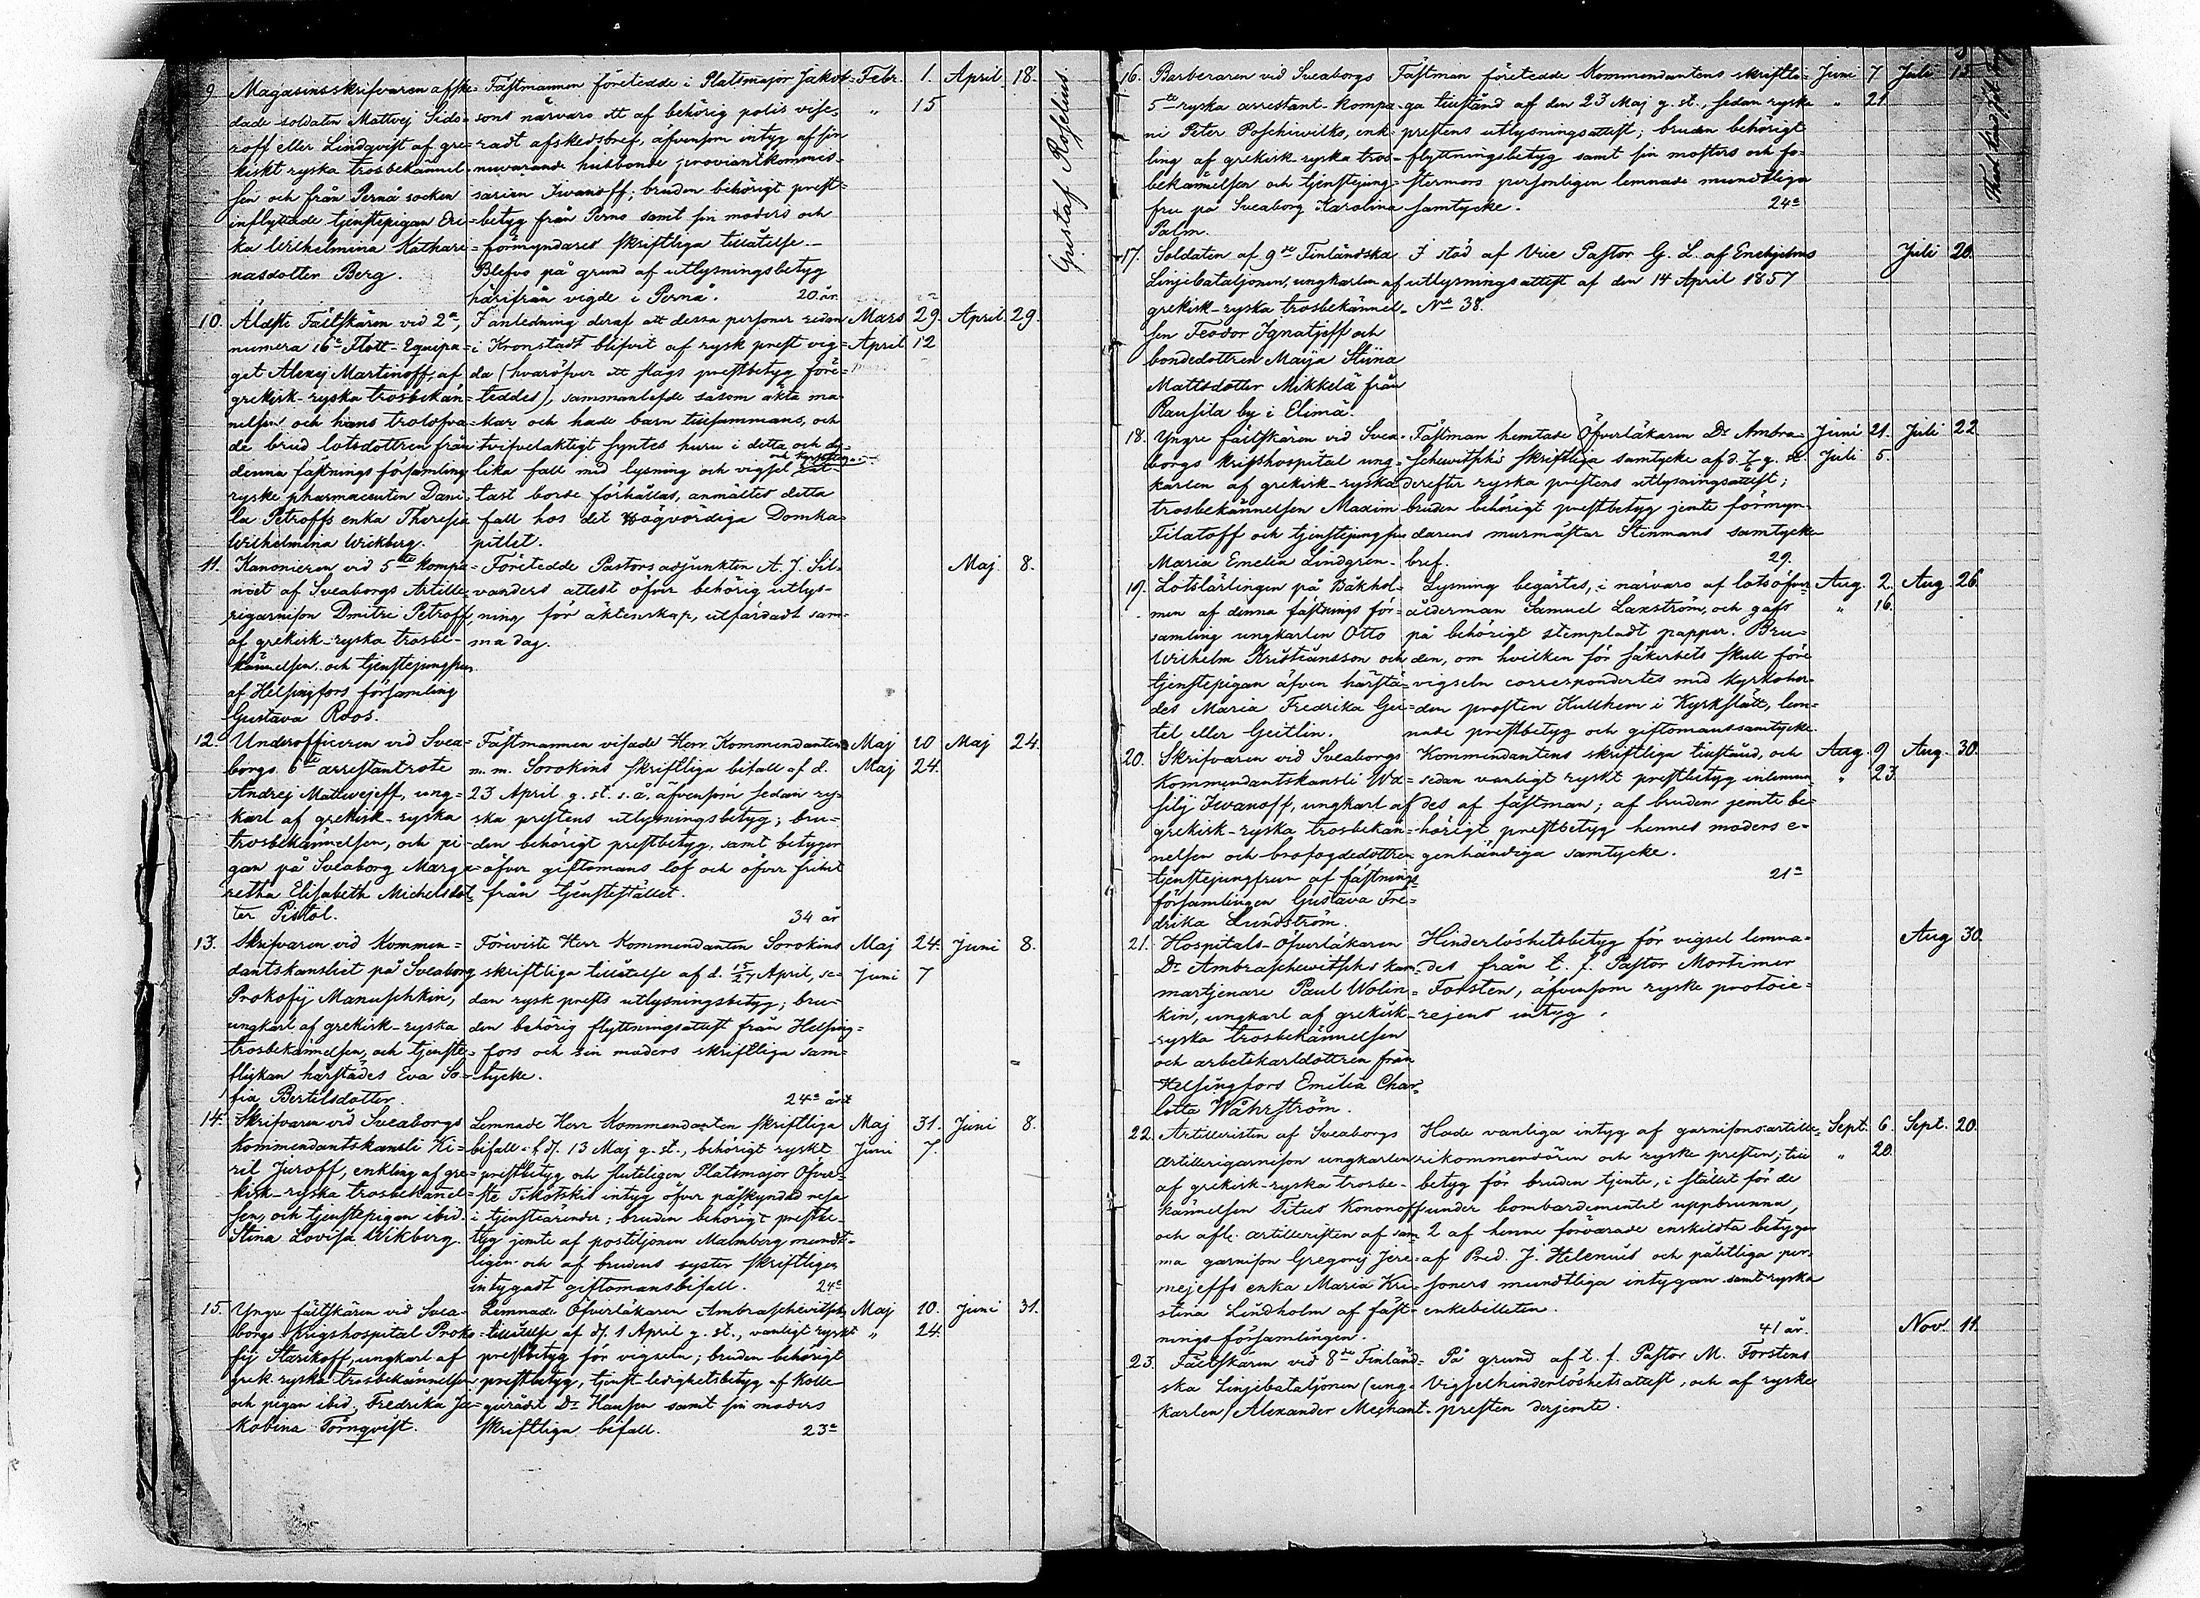 9 Magasinsskrifvaren afske-
dade soldaten Mattvej Sido-
roff eller Lindqvist af gre-
kiskt ryska trosbekännel-
sen och från Pernå socken
inflyttade tjenstepigan Eri-
ka Wilhelmina Kathari-
nasdotter Berg.
Fästmannen företedde i Platsmajor Jakob-
sons närvaro ett af behörig polis vise-
radt afskedsbref, äfvensom intyg af sin
nuvarande husbonde proviantkommis-
sarien Iwanoff; bruden behörigt prest-
betyg från Perno samt sin moders och
förmyndares skriftliga tillåtelse.—
Blefvo på grund af utlysningsbetyg
härifrån vigde i Pernå. 20 år
Febr. 1. April 18.
" 15
10. Äldste Fältskären vid 2a,
numera 16e Flott-Equipa-
get Alexej Martinoff, af
grekisk-ryska trosbekän-
nelsen och hans trolofva-
de brud lotsdottren från
denna fästnings församling
ryske pharmaceuten Dani-
la Petroffs enka Theresia
Wilhelmina Wickberg.
I anledning deraf att dessa personer redan
i Kronstadt blifvit af rysk prest vig-
da (hvaröfver ett slags prestbetyg före-
teddes), sammanlefde såsom äkta ma-
kar och hade barn tillsammans, och
tvifvelaktigt syntes huru i detta och dy-
lika fall med lysning och vigsel
tast borde förhållas, anmältes detta
fall hos det Högvördiga Domka-
pitlet.
Mars 29. April 29.
April 12
11. Kanonieren vid 5te kompa-
niet af Sveaborgs Artille-
rigarnison Dmitri Petroff
af grekisk-ryska trosbe-
kännelsen, och tjenstejungfrun
af Helsingfors församling
Gustava Roos.
Företedde Pastorsadjunkten A. J. Sil-
vanders attest öfver behörig utlys-
ning för äktenskap, utfärdadt sam-
ma dag.
Maj 8.
12. Underofficeren vid Svea-
borgs 6te arrestantrote
Andrej Mattwejeff, ung-
karl af grekisk-ryska
trosbekännelsen, och pi-
gan på Sveaborg Marga-
retha Elisabeth Michelsdot-
ter Pistol.
Fästmannen visade Herr Kommendanten
m. m. Sorokins skriftliga bifall af d.
23 April g. st. s. å, äfvensom sedan ry-
ska prestens utlysningsbetyg; bru-
den behörigt prestbetyg, samt betygen
öfver giftomans lof och öfver frihet
från tjenstestället.
34 år
Maj 10 Maj 24.
Maj 24.
13. Skrifvaren vid Kommen-
dantskansliet på Sveaborg
Prokofij Manuschkin,
ungkarl af grekisk-ryska
trosbekännelsen, och tjenste-
flickan härstädes Eva So-
fia Bertilsdotter
Föreviste Herr Kommendanten Sorokins
skriftliga tillåtelse af d. 15/27 April, se-
dan rysk prests utlysningsbetyg; bru-
den behörig flyttningsattest från Helsing-
fors och sin moders skriftliga sam-
tycke.
24a året
Maj 24. Juni 8.
Juni 7
14. Skrifvaren vid Sveaborgs
Kommendantskansli Ki-
ril Juroff, enkling af gre-
kisk-ryska trosbekännel-
sen, och tjenstepigan ibid.
Stina Lovisa Wikberg.
Lemnade Herr Kommendanten skriftliga
bifall af d. 13 Maj g. st., behörigt ryskt
prestbetyg och sluteligen Platsmajor Öfver-
ste Tikotskis intyg öfver påskyndad resa
i tjensteärende; bruden behörigt prestbe-
tyg jemte af postiljonen Malmberg mundt-
ligen och af brudens syster skriftligen
intygadt giftomansbifall. 24e
Maj 31. Juni 8.
Juni 7.
15. Yngre fältskären vid Svea-
borgs Krigshospital Proko-
fij Starikoff, ungkarl af
grek. ryska trosbekännelsen
och pigan ibid. Fredrika Ja-
kobina Törnqvist.
Lemnade Öfverläkaren Ambraschewitschs
tillåtelse af d. 1 April g. st., vanligt ryskt
prestbetyg för vigseln; bruden behörigt
prestbetyg, tjenst-ledighetsbetyg af Kolle-
girådet Dr Hansen samt sin moders
skriftliga bifall. 23a
Maj 10. Juni 31.
" 24.
Gustaf Roselius
16. Barberaren vid Sveaborgs
5te ryska arrestant-kompa-
ni Peter Poschiwilko, enk-
ling af grekisk-ryska tros-
bekännelsen och tjenstejung-
fru på Sveaborg Karolina
Palm.
Fästman företedde Kommendantens skriftli-
ga tillstånd af den 23 Maj g. st., sedan ryske
prestens utlysningsattest; bruden behörigt
flyttningsbetyg samt sin mosters och fo-
stermors personligen lemnade mundtliga
samtycke. 24a
Juni 7 Juli 15.
" 21
17. Soldaten af 9de Finländska
Linjebataljonen, ungkarlen af
grekisk-ryska trosbekännel-
sen Teodor Ignatjeff och
bondedottren Maija Stiina
Mattsdotter Mikkelä från
Raussila by i Elimä.
I stöd af Vice Pastor G. L. af Enehjelms
utlysningsattest af den 14 April 1857
No 38.
Juli 20.
18. Yngre fältskären vid Svea-
borgs krigshospital ung-
karlen af grekisk-ryska
trosbekännelsen Maxim
Filatoff och tjenstejungfru
Maria Emelia Lindgren.
Fästman hemtade Öfverläkaren Dr Ambra-
schewitschs skriftliga samtycke af d. 7/6 g. st.
derefter ryska prestens utlysningsattest;
bruden behörigt prestbetyg jemte förmyn-
darens murmästar Stenmans samtycke
bref. 29.
Juni 21. Juli 22
Juli 5.
19. Lotslärlingen på Båkhol-
men af denna fästnings för-
samling ungkarlen Otto
Wilhelm Kristiansson och
tjenstepigan äfven härstä-
des Maria Fredrika Gei-
tel eller Geitlin.
Lysning begärtes, i närvaro af lotsöfver-
ålderman Samuel Laxström, och gafs
på behörigt stempladt papper. Bru-
den, om hvilken för säkerhets skull före
vigseln correspondertes med kyrkoher-
den prosten Kullhem i Kyrkslätt, lem-
nade prestbetyg och giftomanssamtycke.
Aug. 2. Aug. 26.
" 16.
20. Skrifvaren vid Sveaborgs
Kommendantskansli Wa-
silij Iwanoff, ungkarl af
grekisk-ryska trosbekän-
nelsen och brofogdedottren
tjenstejungfrun af fästnings-
församlingen Gustava Fre-
drika Lundström.
Kommendantens skriftliga tillstånd, och
sedan vanligt ryskt prestbetyg inlemna-
des af fästman; af bruden jemte be-
hörigt prestbetyg hennes moders e-
genhändiga samtycke.
21a
Aug. 9 Aug. 30.
" 23.
21. Hospitals-Öfverläkaren
Dr Ambraschewitschs kam-
martjenare Paul Wolin-
kin, ungkarl af grekisk-
ryska trosbekännelsen
och arbetskarldottren från
Helsingfors Emilia Char-
lotta Wåhrström.
Hinderlöshetsbetyg för vigsel lemna-
des från t. f. Pastor Mortimer
Forsten, äfvensom ryske protoie-
rejens intyg.
Aug 30.
22. Artilleristen af Sveaborgs
Artillerigarnison ungkarlen
af grekisk-ryska trosbe-
kännelsen Titus Kononoff
och afl. artilleristen af sam-
ma garnison Gregorij Jere-
mejeffs enka Maria Kri-
stina Lindholm af fäst-
nings-församlingen.
Hade vanliga intyg af garnisonsartille-
rikommendören och ryske presten; till
betyg för bruden tjente, i stället för de
under bombardementet uppbrunna,
2 af henne förvarade enskilda betygen
af Pred. J. Helenius och pålitliga per-
soners mundtliga intygan samt ryska
enkebilleten.
41 år.
Sept. 6. Sept. 20.
" 20.
23. Fältskären vid 8de Finländ-
ska Linjebataljonen (ung-
karlen) Alexander Mechant-
På grund af t. f. Pastor M. Forstens
Vigselhinderlöshetsattest, och af ryske
presten derjemte.
Nov. 11.